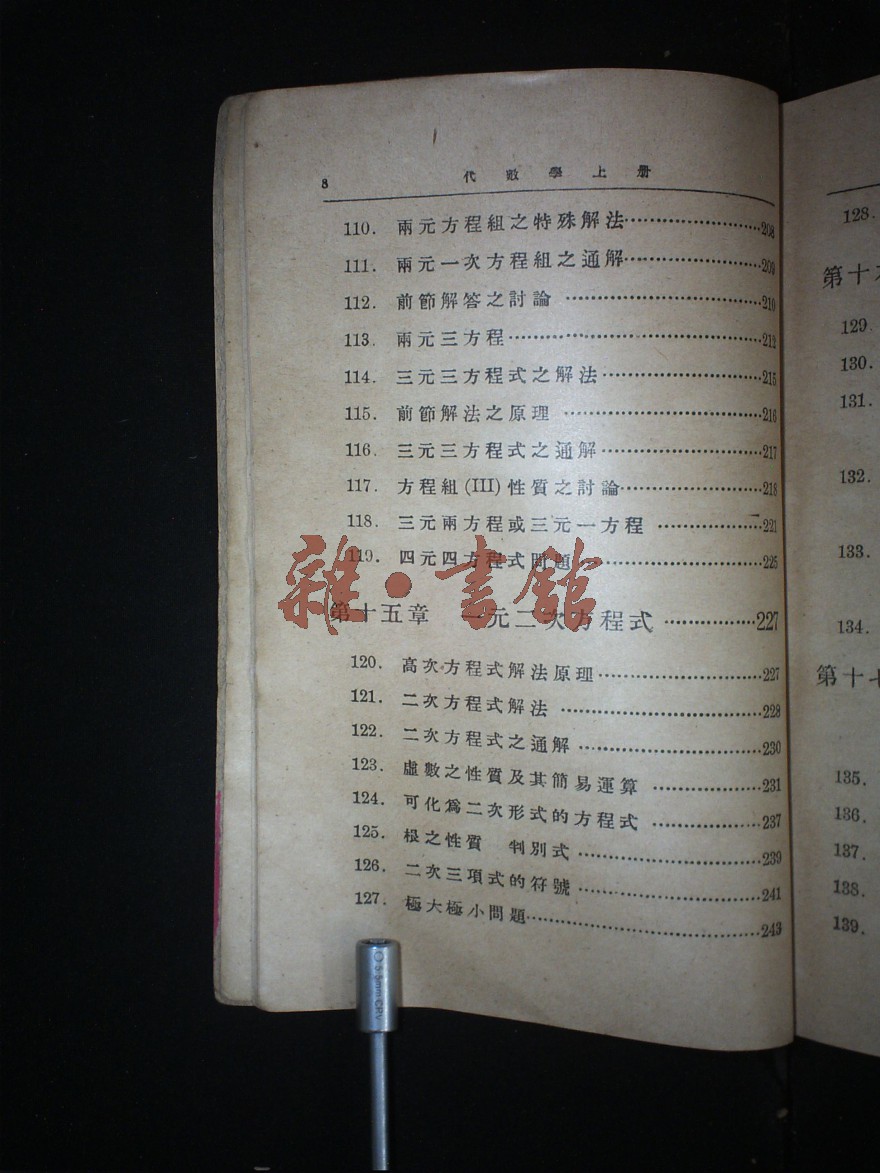 8 代數學上册
110. 兩元方程組之特殊解法……208
111. 兩元一次方程組之通解……209
112. 前節解答之討論……210
113. 兩元三方程……212
114. 三元三方程式之解法……215
115. 前節解法之原理……216
116. 三元三方程式之通解……217
117. 方程組(III)性質之討論……218
118. 三元兩方程或三元一方程……221
119. 四元四方程式問題……225
雜·書館
第十五章 一元二次方程式……227
120. 高次方程式解法原理……227
121. 二次方程式解法……228
122. 二次方程式之通解……230
123. 虛數之性質及其簡易運算……231
124. 可化爲二次形式的方程式……237
125. 根之性質 判別式……239
126. 二次三項式的符號……241
127. 極大極小問題……243
128.
第十
129.
130.
131.
132.
133.
134.
第十七
135.
136.
137.
138.
139.
5.5mm CRV